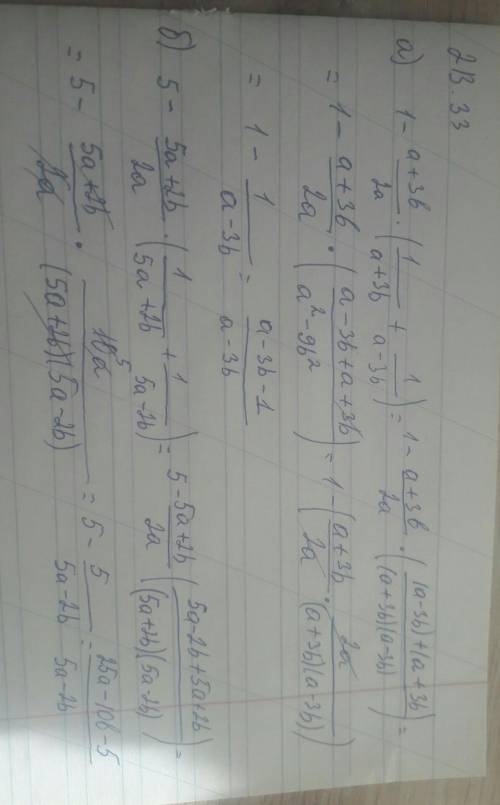 2В.33
а) 1 - \frac{a+3b}{2a} · (\frac{1}{a+3b} + \frac{1}{a-3b}) = 1 - \frac{a+3b}{2a} · (\frac{(a-3b)+(a+3b)}{(a+3b)(a-3b)}) =
= 1 - \frac{a+3b}{2a} · (\frac{a-3b+a+3b}{a²-9b²}) = 1 - (\frac{a+3b}{2a} · \frac{2a}{(a+3b)(a-3b)})
= 1 - \frac{1}{a-3b} = \frac{a-3b-1}{a-3b}
б) 5 - \frac{5a+2b}{2a} · (\frac{1}{5a+2b} + \frac{1}{5a-2b}) = \frac{5-5a+2b}{2a} (\frac{5a-2b+5a+2b}{(5a+2b)(5a-2b)}) =
= 5 - \frac{5a+2b}{2a} · \frac{10a 5}{(5a+2b)(5a-2b)} = 5 - \frac{5}{5a-2b} = \frac{25a-10b-5}{5a-2b}